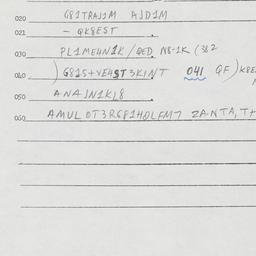 020 G81TRAJ1M AJD1M
021 - QK8EST .
030 PL1ME4N1K / QED N8-1K (382
040 ) G81S+VE4ST3KINT 041 QF ) K8E
050 ANAJN1K18 .
060 AMUL OT3RG81HOLFM7 ZANTA, T+